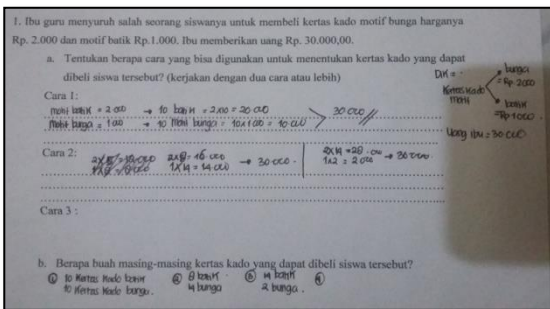 1. Ibu guru menyuruh salah seorang siswanya untuk membeli kertas kado motif bunga harganya
Rp. 2.000 dan motif batik Rp.1.000. Ibu memberikan uang Rp. 30.000,00.
a. Tentukan berapa cara yang bisa digunakan untuk menentukan kertas kado yang dapat
dibeli siswa tersebut? (kerjakan dengan dua cara atau lebih)
Dik = •
Kertas Kado
motif
bunga
= Rp 2000
batik
= Rp 1000
Uang ibu = 30 000
Cara 1:
motif batik = 2 000 → 10 batik = 2,00 = 20 000
motif bunga = 1 000 → 10 motif bunga = 10 x 1 000 = 10 000
30 000 //
Cara 2:
2x8 = 16 000
1x14 = 14 000 → 30 000 .
2x14 = 28 . 000
1x2 = 2 000 → 30 000
Cara 3 :
b. Berapa buah masing-masing kertas kado yang dapat dibeli siswa tersebut?
① 10 Kertas Kado batik
10 Kertas Kado bunga .
② 8 batik .
14 bunga
③ 14 batik
2 bunga .
④